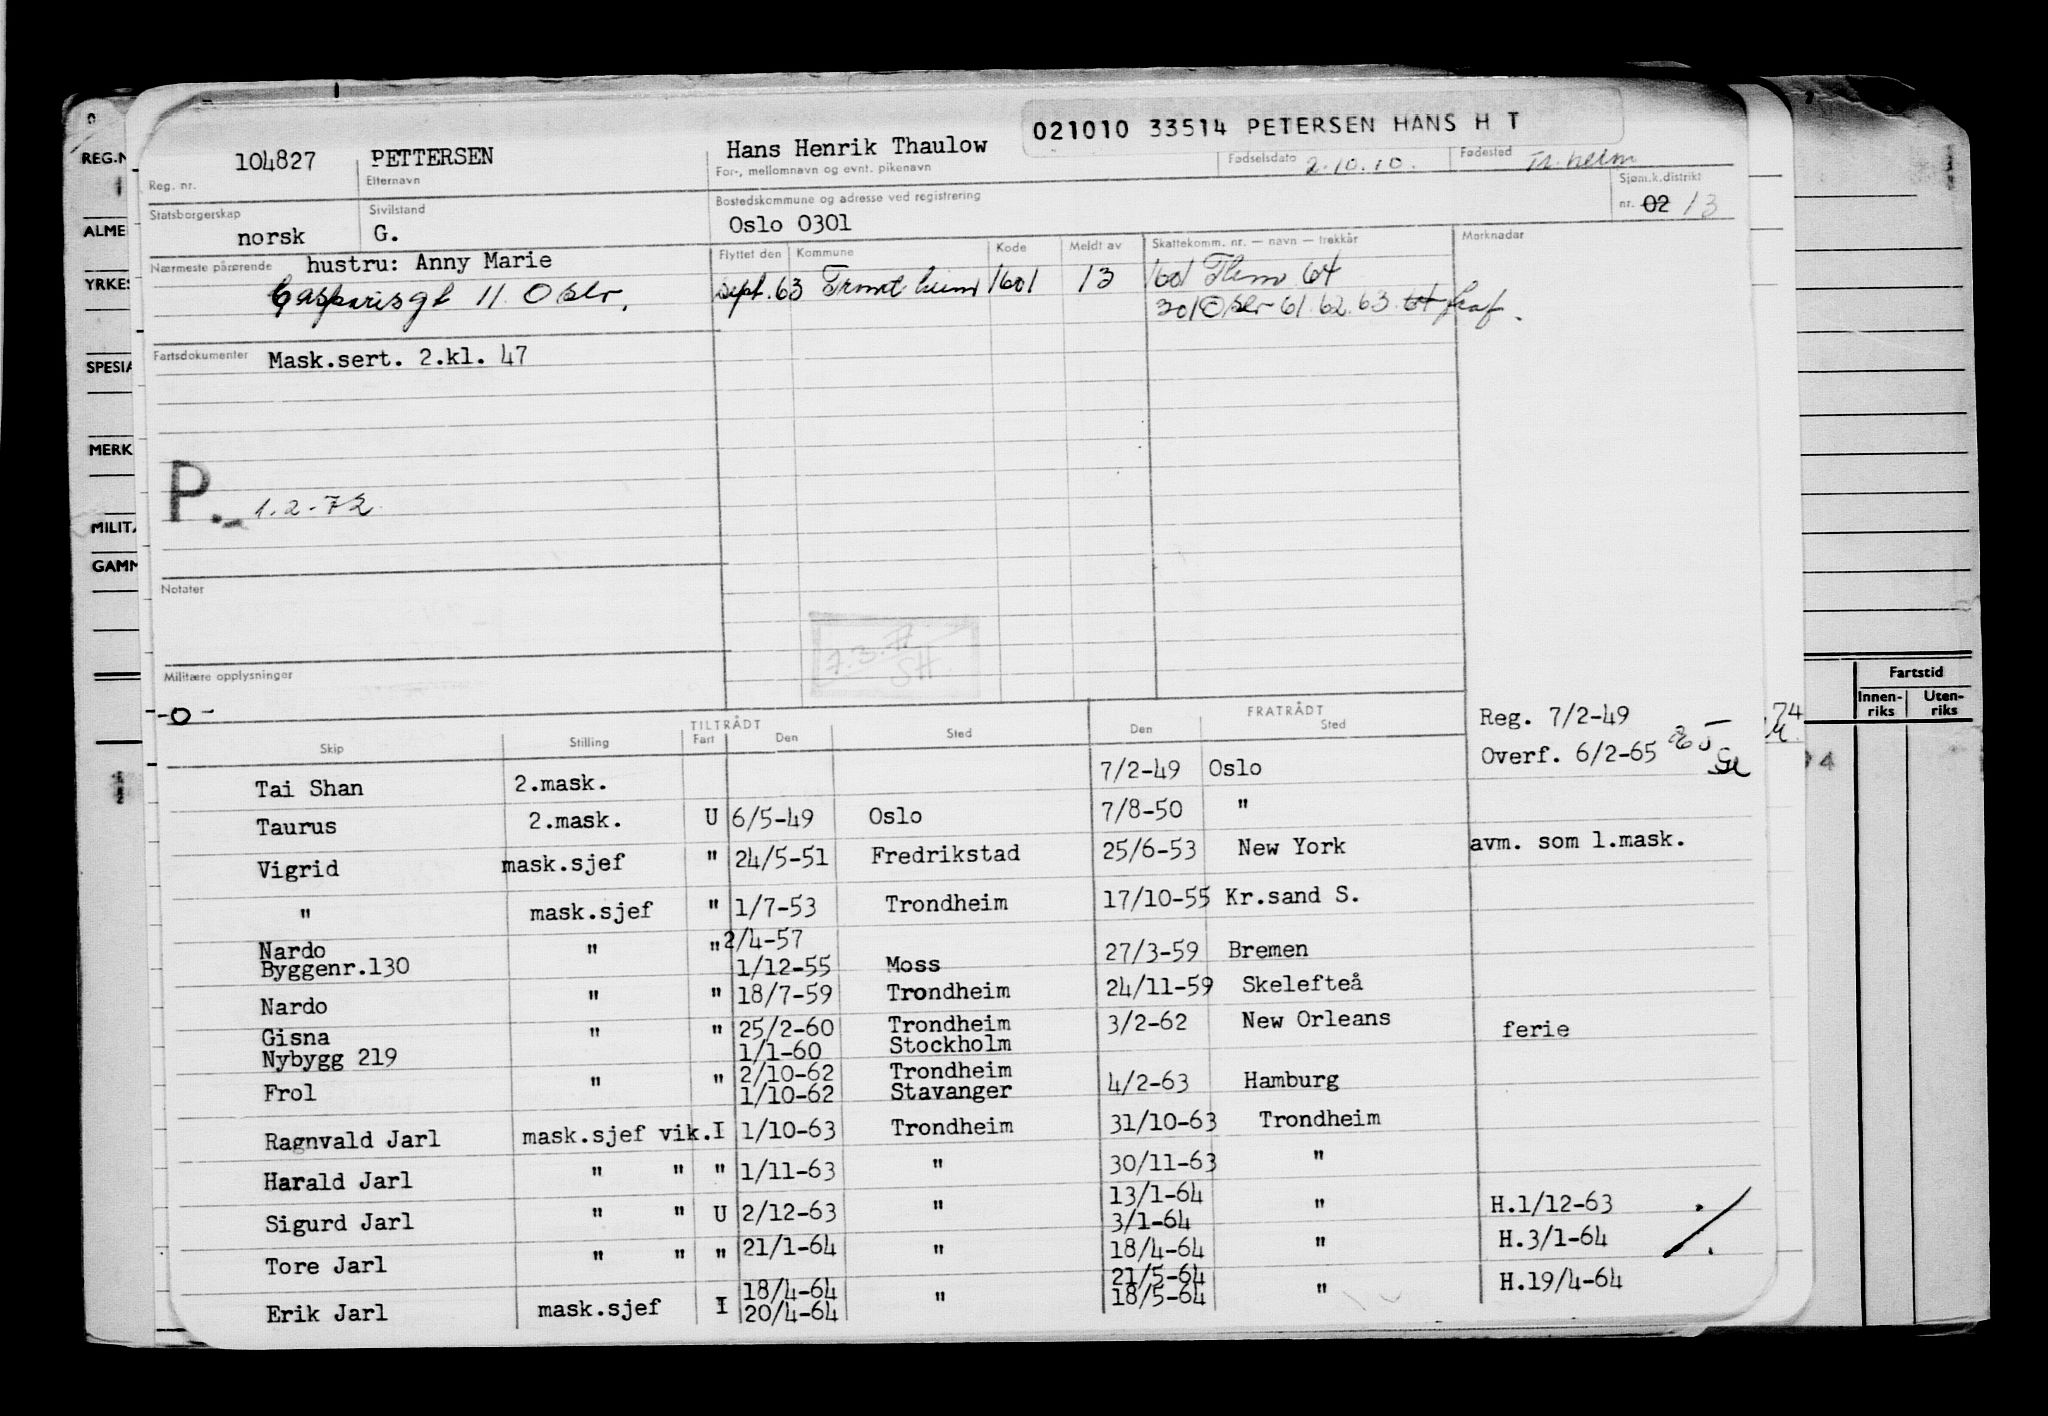 021010 33514 PETERSEN HANS H T
REG.N
104827 PETTERSEN Hans Henrik Thaulow Fødselsdato 2.10.10. Fødested Tr.heim
Reg. nr. Etternavn For-, mellomnavn og evnt. pikenavn
Statsborgerskap Sivilstand Bostedskommune og adresse ved registrering Sjøm.k.distrikt
norsk G. Oslo 0301 nr. 02 13
ALME
Nærmeste pårørende hustru: Anny Marie Flyttet den Kommune Kode Meldt av Skattekomm. nr. — navn — trekkår Merknader
YRKES
Casparisgt 11. Oslo. sept. 63 Trondheim 1601 13 1601 Thm 64
301 Oslo 61. 62. 63. 64
Fartsdokumenter Mask.sert. 2.kl. 47
SPESIA
MERK
P. 1.2-72
MILITÆ
GAMM
Notater
7.3.
SH.
Militære opplysninger
-0-
Fartstid
Innen-riks Uten-riks
TILTRÅDT FRATRÅDT Reg. 7/2-49 74
Skip Stilling Fart Den Sted Den Sted Overf. 6/2-65
Tai Shan 2.mask. 7/2-49 Oslo
Taurus 2.mask. U 6/5-49 Oslo 7/8-50 "
Vigrid mask.sjef " 24/5-51 Fredrikstad 25/6-53 New York avm. som 1.mask.
" mask.sjef " 1/7-53 Trondheim 17/10-55 Kr.sand S.
Nardo " " 2/4-57 27/3-59 Bremen
Byggenr.130 1/12-55 Moss
Nardo " " 18/7-59 Trondheim 24/11-59 Skelefteå
Gisna " " 25/2-60 Trondheim 3/2-62 New Orleans ferie
Nybygg 219 1/1-60 Stockholm
Frol " " 2/10-62 Trondheim 4/2-63 Hamburg
1/10-62 Stavanger
Ragnvald Jarl mask.sjef vik. I 1/10-63 Trondheim 31/10-63 Trondheim
Harald Jarl " " " 1/11-63 " 30/11-63 "
Sigurd Jarl " " U 2/12-63 " 13/1-64 " H.1/12-63
3/1-64
Tore Jarl " " " 21/1-64 " 18/4-64 " H.3/1-64
21/5-64
Erik Jarl mask.sjef I 18/4-64 " 18/5-64 " H.19/4-64
20/4-64